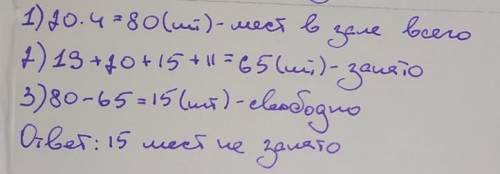 1) 20 · 4 = 80 (шт) - мест в зале всего
2) 19 + 20 + 15 + 11 = 65 (шт) - занято
3) 80 - 65 = 15 (шт) - свободно
Ответ: 15 мест не занято